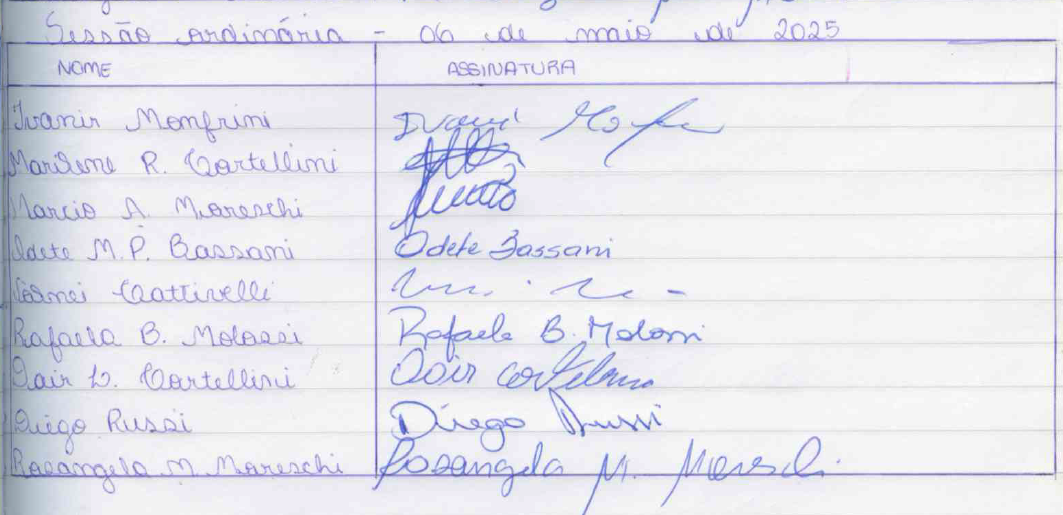 Sessão ordinária - 06 de maio de 2025
NOME ASSINATURA
Ivanir Monfrini Ivanir
Marilene R. Cortellini
Marcio A. Moreschi Marcio
Odete M.P. Bassani Odete Bassani
Cattivelli
Rafaela B. Molossi Rafaela B. Molossi
Odair L. Cortellini Odair Cortellini
Diego Russi Diego Russi
Rosangela M. Moreschi Rosangela M. Moreschi